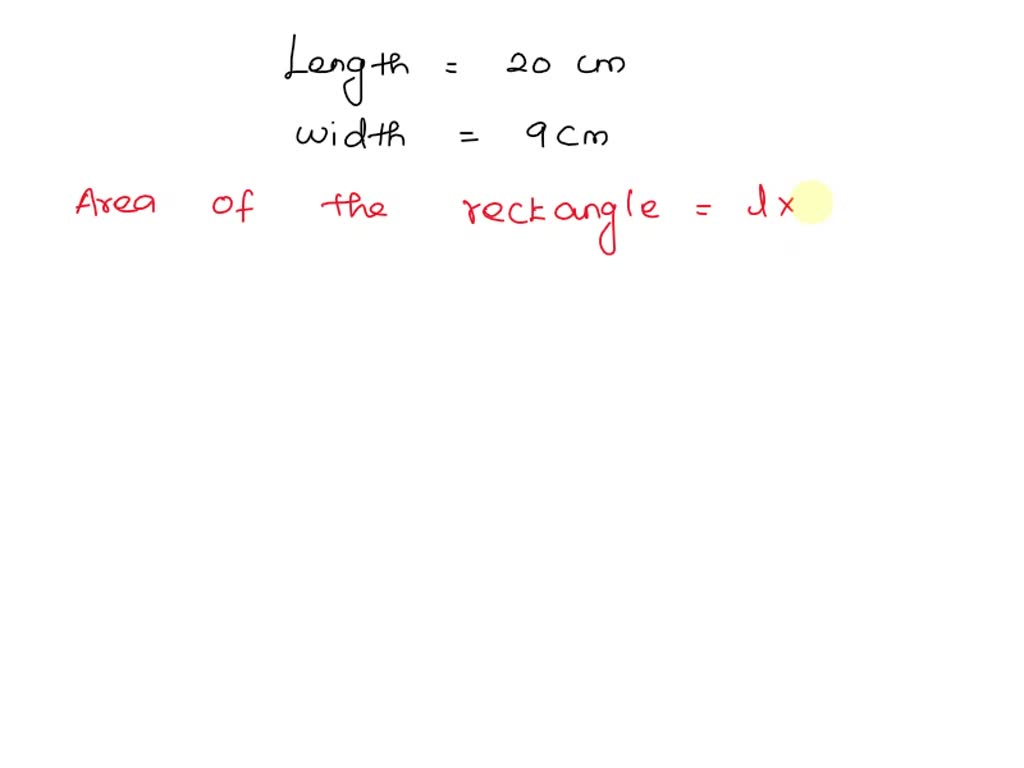 Length = 20 cm
width = 9 cm
Area of the rectangle = l ×